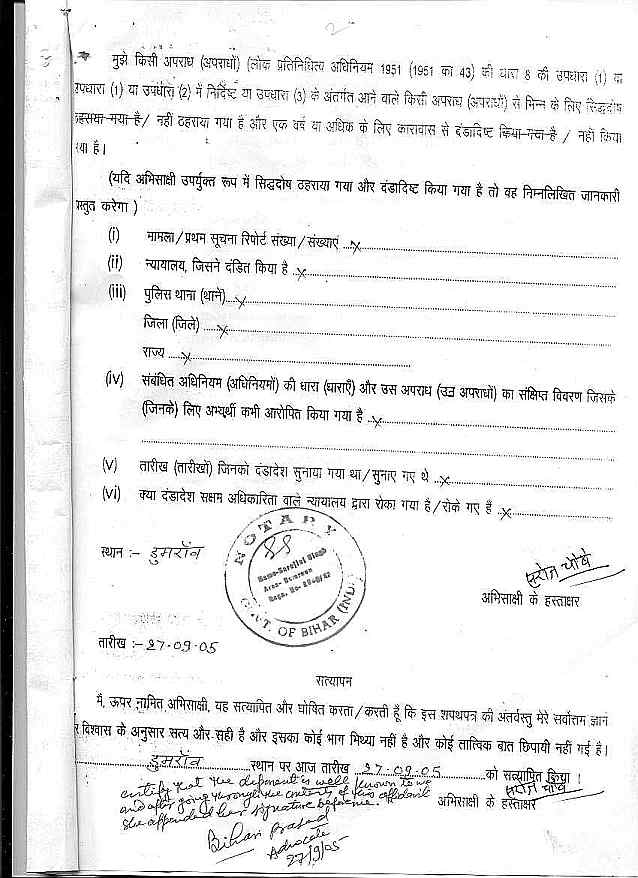 2
मुझे किसी अपराध (अपराधों) (लोक प्रतिनिधित्व अधिनियम 1951 (1951 का 43) की धारा 8 की उपधारा (1) या
उपधारा (1) या उपधारा (2) में निर्दिष्ट या उपधारा (3) के अंतर्गत आने वाले किसी अपराध (अपराधों) से भिन्न के लिए सिद्धदोष
ठहराया गया है/ नहीं ठहराया गया है और एक वर्ष या अधिक के लिए कारावास से दंडादिष्ट किया गया है / नहीं किया
गया है।
(यदि अभिसाक्षी उपर्युक्त रूप में सिद्धदोष ठहराया गया और दंडादिष्ट किया गया है तो वह निम्नलिखित जानकारी
प्रस्तुत करेगा )
(i) मामला/प्रथम सूचना रिपोर्ट संख्या/संख्याएं ...x
(ii) न्यायालय, जिसने दंडित किया है ...x
(iii) पुलिस थाना (थाने)...x
जिला (जिले) ...x
राज्य ...x
(iv) संबंधित अधिनियम (अधिनियमों) की धारा (धाराएँ) और उस अपराध (उन अपराधों) का संक्षिप्त विवरण जिसके
(जिनके) लिए अभ्यर्थी कभी आरोपित किया गया है ...x
(v) तारीख (तारीखों) जिनको दंडादेश सुनाया गया था/सुनाए गए थे ...x
(vi) क्या दंडादेश सक्षम अधिकारिता वाले न्यायालय द्वारा रोका गया है/रोके गए हैं ...x
स्थान :- डुमराँव
NOTARY
88
Name-Sarojini Singh
Area-
Regn. No-
GOVT. OF BIHAR (IND.)
सरोज चौबे
अभिसाक्षी के हस्ताक्षर
तारीख :- 27-09-05
सत्यापन
मैं, ऊपर नामित अभिसाक्षी, यह सत्यापित और घोषित करता/करती हूँ कि इस शपथपत्र की अंतर्वस्तु मेरे सर्वोत्तम ज्ञान
र विश्वास के अनुसार सत्य और सही है और इसका कोई भाग मिथ्या नहीं है और कोई तात्विक बात छिपायी नहीं गई है।
डुमराँव स्थान पर आज तारीख 27-09-05 को सत्यापित किया।
सरोज चौबे
अभिसाक्षी के हस्ताक्षर
certify that the deponent is well known to me
and after going through the contents of this affidavit
she appended her signature before me.
Bihari Prasad
Advocate
27/9/05